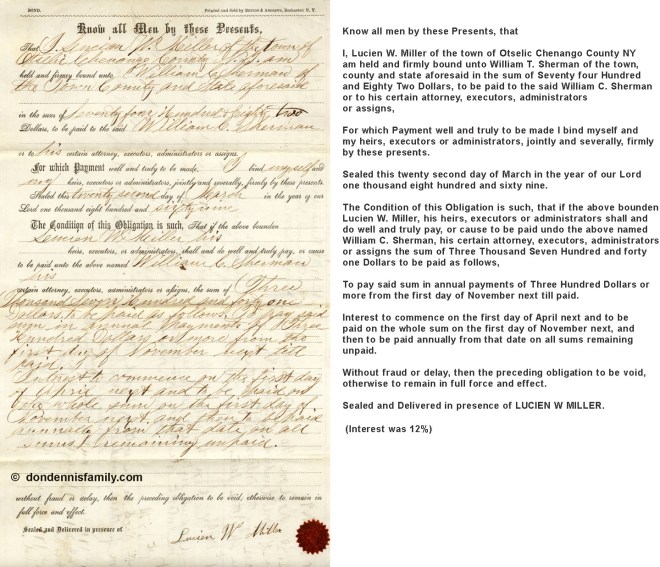 BOND.
Printed and Sold by
Know all Men by these Presents,
That I Lucian W. Miller of the town of
Otselic Chenango County N.Y. am
held and firmly bound unto William C. Sherman of
the Town County and State aforesaid
in the sum of Seventy four Hundred & Eighty two
Dollars, to be paid to the said William C. Sherman
or to his certain attorney, executors, administrators or assigns.
For which Payment well and truly to be made, I bind myself and
my heirs, executors or administrators, jointly and severally, firmly by these presents.
Sealed this twenty second day of March in the year of our
Lord one thousand eight hundred and sixty nine
The Condition of this Obligation is such, That if the above bounden
Lucien W. Miller his
heirs, executors, or administrators, shall and do well and truly pay, or cause
to be paid unto the above named William C. Sherman
his
certain attorney, executors, administrators or assigns, the sum of Three
thousand Seven Hundred and forty one
Dollars to be paid as follows. To pay said
sum in annual payments of Three
Hundred Dollars or more from the
first day of November next till
paid.
Interest to commence on the first day
of April next and to be paid on
the whole sum on the first day of
November next, and then to be paid
annually from that date on all
sums remaining unpaid.
© dondennisfamily.com
without fraud or delay, then the preceding obligation to be void, otherwise to remain in
full force and effect.
Sealed and Delivered in presence of
Lucien W Miller
Know all men by these Presents, that
I, Lucien W. Miller of the town of Otselic Chenango County NY
am held and firmly bound unto William T. Sherman of the town,
county and state aforesaid in the sum of Seventy four Hundred
and Eighty Two Dollars, to be paid to the said William C. Sherman
or to his certain attorney, executors, administrators
or assigns,
For which Payment well and truly to be made I bind myself and
my heirs, executors or administrators, jointly and severally, firmly
by these presents.
Sealed this twenty second day of March in the year of our Lord
one thousand eight hundred and sixty nine.
The Condition of this Obligation is such, that if the above bounden
Lucien W. Miller, his heirs, executors or administrators shall and
do well and truly pay, or cause to be paid undo the above named
William C. Sherman, his certain attorney, executors, administrators
or assigns the sum of Three Thousand Seven Hundred and forty
one Dollars to be paid as follows,
To pay said sum in annual payments of Three Hundred Dollars or
more from the first day of November next till paid.
Interest to commence on the first day of April next and to be
paid on the whole sum on the first day of November next, and
then to be paid annually from that date on all sums remaining
unpaid.
Without fraud or delay, then the preceding obligation to be void,
otherwise to remain in full force and effect.
Sealed and Delivered in presence of LUCIEN W MILLER.
(Interest was 12%)